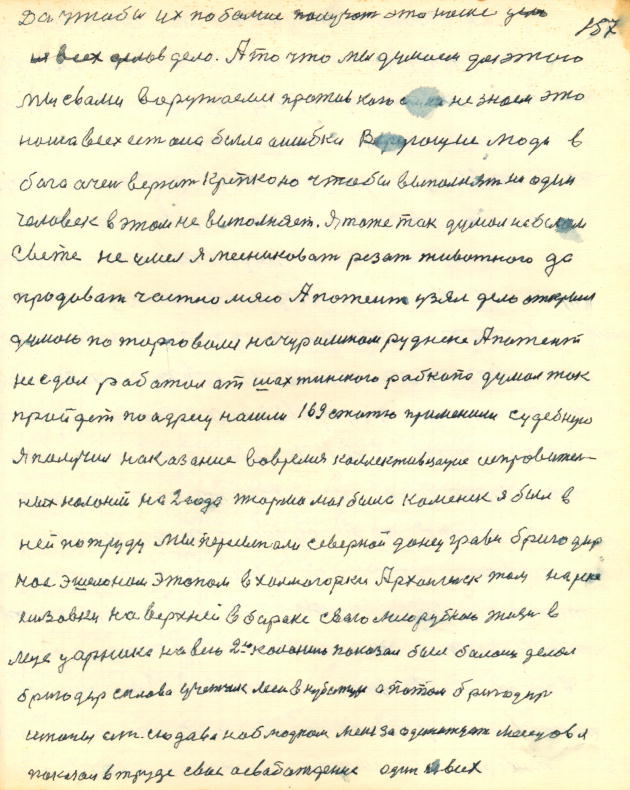 157
Да чтобы их побольше получат это наше цель
и всех слов дело. А то что мы думаем для этого
мы свами воружаемси против кого не знаем это
наша всех ест она была ошибка Верующие люди в
бога очен верят Крепко но чтобы выполнят не один
человек в этом не выполняет. Я тоже так думал на белом
свете не умел я месниковат резат животного да
продоват частно мясо А патент узял дело открыл
думаю по торговали на чуралином руднеке А патент
не сдал работал от шахтинского рабкопа думал так
пройдет по адресу нашли 169 статю применили судебную
Я получил наказание вовремя коллективзацие исправител-
них колоний на 2 года тюрма моя была Каменск я был в
ней по труду мы перешпали северной донец грави бригодир
нас эшелоном этопом в Холмогорки Архонгльск там на реке
на верхней в бараке свою лесорубную жизн в
леце ударника на всю 2ую колонию показал был баланц делал
бригодир сплова учетчик леса в кубатури а потом бригодир
за одинатцат месецов я
показал в труде свое асвабаждение один из всех